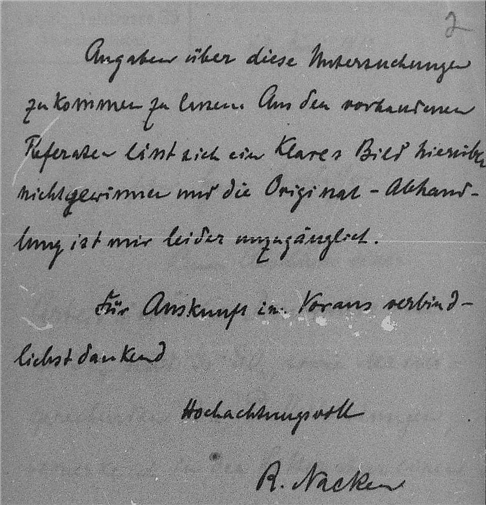 2
Angaben über diese Untersuchungen
zukommen zu lassen. Aus den vorhandenen
Referaten lässt sich ein klares Bild hierüber
nicht gewinnen und die Original-Abhand-
lung ist mir leider unzugänglich.
Für Auskunft im Voraus verbind-
lichst dankend
Hochachtungsvoll
R. Nacken